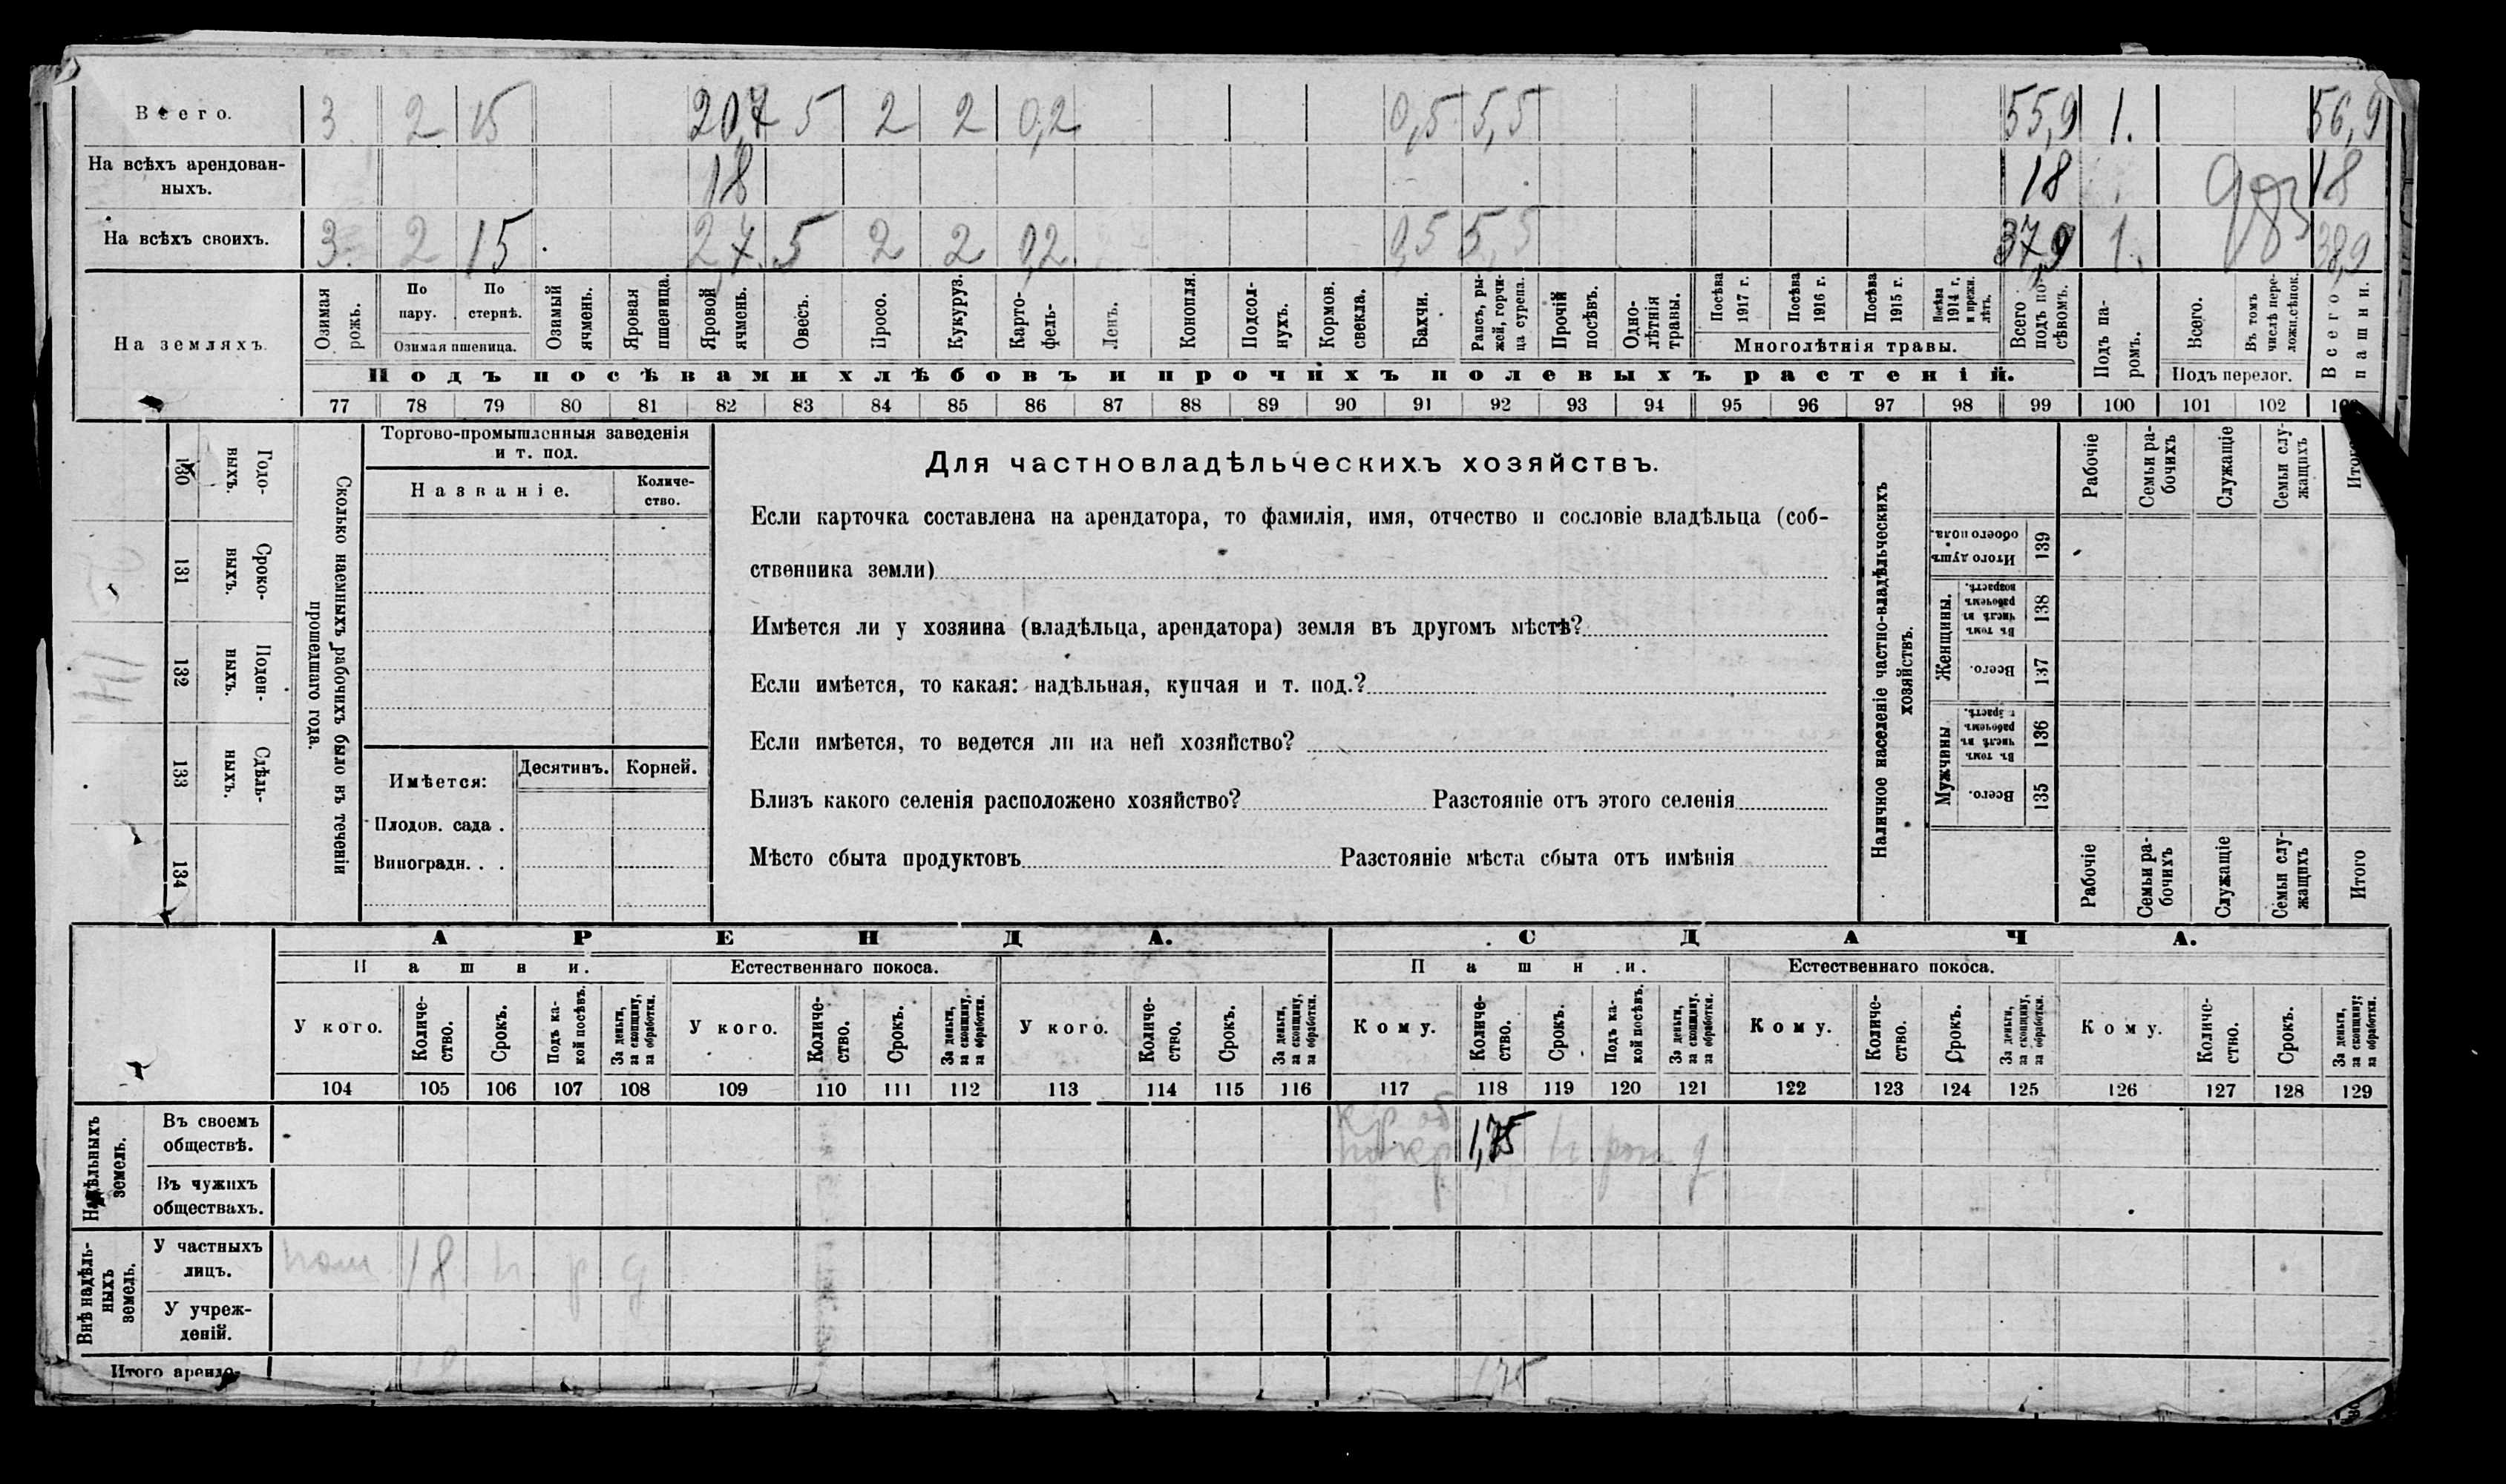 Всего. 3 2 15 20,7 5 2 2 0,2 0,5 5,5 55,9 1. 56,9
На всѣхъ арендован-
ныхъ. 18 18 18
983
На всѣхъ своихъ. 3. 2 15 2,7. 5 2 2 0,2. 0,5 5,5 37,9 1. 38,9
На земляхъ.
Озимая рожь.
По пару.
По стернѣ.
Озимая пшеница.
Озимый ячмень.
Яровая пшеница.
Яровой ячмень.
Овесъ.
Просо.
Кукуруз.
Карто-
фель.
Ленъ.
Конопля.
Подсол-
нухъ.
Кормов. свекла.
Бахчи.
Рапсъ, ры-
жей, горчи-
ца сурепа.
Прочій посѣвъ.
Одно-
лѣтнія травы.
Посѣва 1917 г.
Посѣва 1916 г.
Посѣва 1915 г.
Посѣва 1914 г. и прежн. лѣтъ.
Многолѣтнія травы.
Всего подъ по-
сѣвомъ.
Подъ па-
ромъ.
Всего.
Въ томъ числѣ пере-
ложн.сѣнок.
Подъ перелог.
Всего пашни.
Подъ посѣвами хлѣбовъ и прочихъ полевыхъ растеній.
77 78 79 80 81 82 83 84 85 86 87 88 89 90 91 92 93 94 95 96 97 98 99 100 101 102
Сколько наемныхъ рабочихъ было въ теченіи
прошедшаго года.
Годо-
выхъ.
130
Сроко-
выхъ.
131
Поден-
ныхъ.
132
Сдѣль-
ныхъ.
133
134
Торгово-промышленныя заведенія
и т. под.
Названіе.
Количе-
ство.
Имѣется:
Десятинъ.
Корней.
Плодов. сада .
Виноградн. . .
Для частновладѣльческихъ хозяйствъ.
Если карточка составлена на арендатора, то фамилія, имя, отчество и сословіе владѣльца (соб-
ственника земли)
Имѣется ли у хозяина (владѣльца, арендатора) земля въ другомъ мѣстѣ?
Если имѣется, то какая: надѣльная, купчая и т. под.?
Если имѣется, то ведется ли на ней хозяйство?
Близъ какого селенія расположено хозяйство? Разстояніе отъ этого селенія
Мѣсто сбыта продуктовъ Разстояніе мѣста сбыта отъ имѣнія
Наличное населеніе частно-владѣльческихъ
хозяйствъ.
Рабочіе
Семьи ра-
бочихъ
Служащіе
Семьи слу-
жащихъ
Итого
Итого душъ обоего пола.
139
Женщины.
Въ томъ числѣ въ рабочемъ возрастѣ.
138
Всего.
137
Мужчины
Въ томъ числѣ въ рабочемъ
136
Всего.
135
Рабочіе
Семьи ра-
бочихъ
Служащіе
Семьи слу-
жащихъ
Итого
АРЕНДА.
СДАЧА.
Пашни.
Естественнаго покоса.
Пашни.
Естественнаго покоса.
У кого.
Количе-
ство.
Срокъ.
Подъ ка-
кой посѣвъ.
За деньги, за скопщину, за обработки.
У кого.
Количе-
ство.
Срокъ.
За деньги, за скопщину, за обработки.
У кого.
Количе-
ство.
Срокъ.
За деньги, за скопщину, за обработки.
Кому.
Количе-
ство.
Срокъ.
Подъ ка-
кой посѣвъ.
За деньги, за скопщину, за обработки.
Кому.
Количе-
ство.
Срокъ.
За деньги, за скопщину, за обработки.
Кому.
Количе-
ство.
Срокъ.
За деньги, за скопщину; за обработки.
104 105 106 107 108 109 110 111 112 113 114 115 116 117 118 119 120 121 122 123 124 125 126 127 128 129
Надѣльныхъ земель.
Въ своемъ
обществѣ. 1,75
Въ чужихъ
обществахъ.
Внѣ надѣль-
ныхъ земель.
У частныхъ
лицъ. 18
У учреж-
деній.
Итого арендо- 1,75